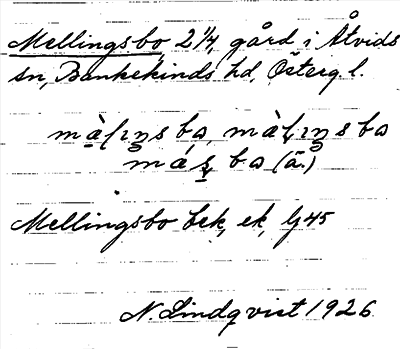 Mellingsbo 2 1/4, gård i Åtvids
sn, Bankekinds hd, Österg. l.
màlıŋs bo, màlıŋs bo
más bo (ä.)
Mellingsbo bek, ek, Lj 45
N. Lindqvist 1926.